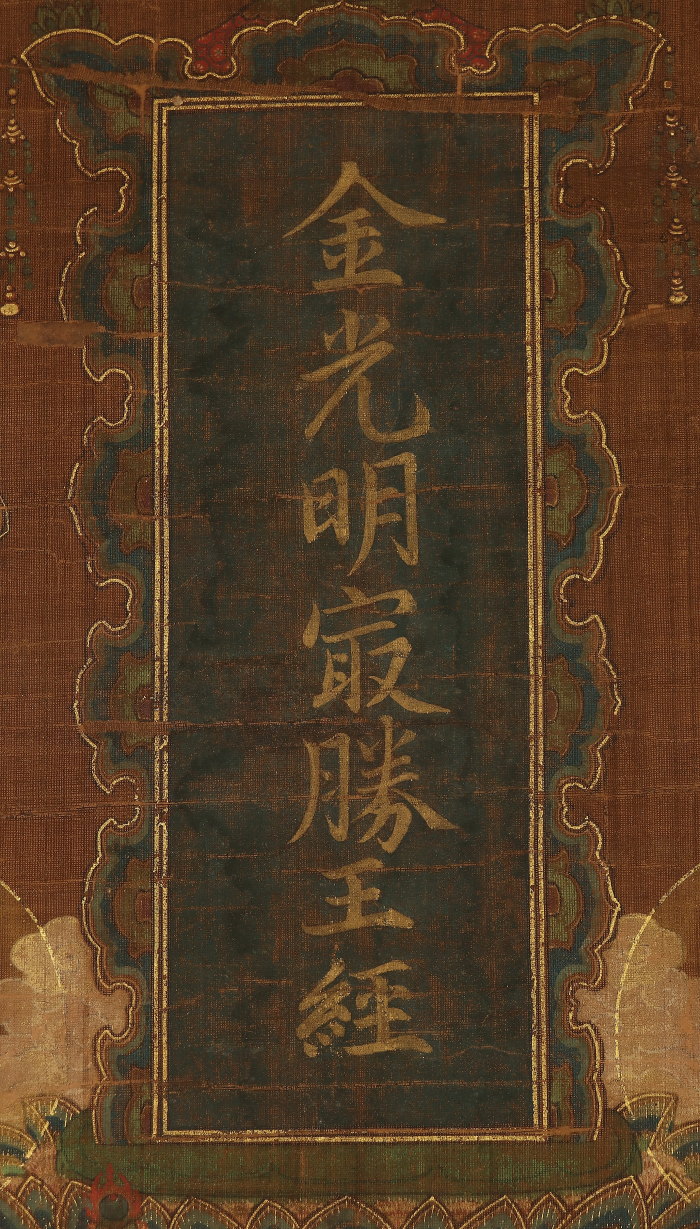 金光明㝡勝王經